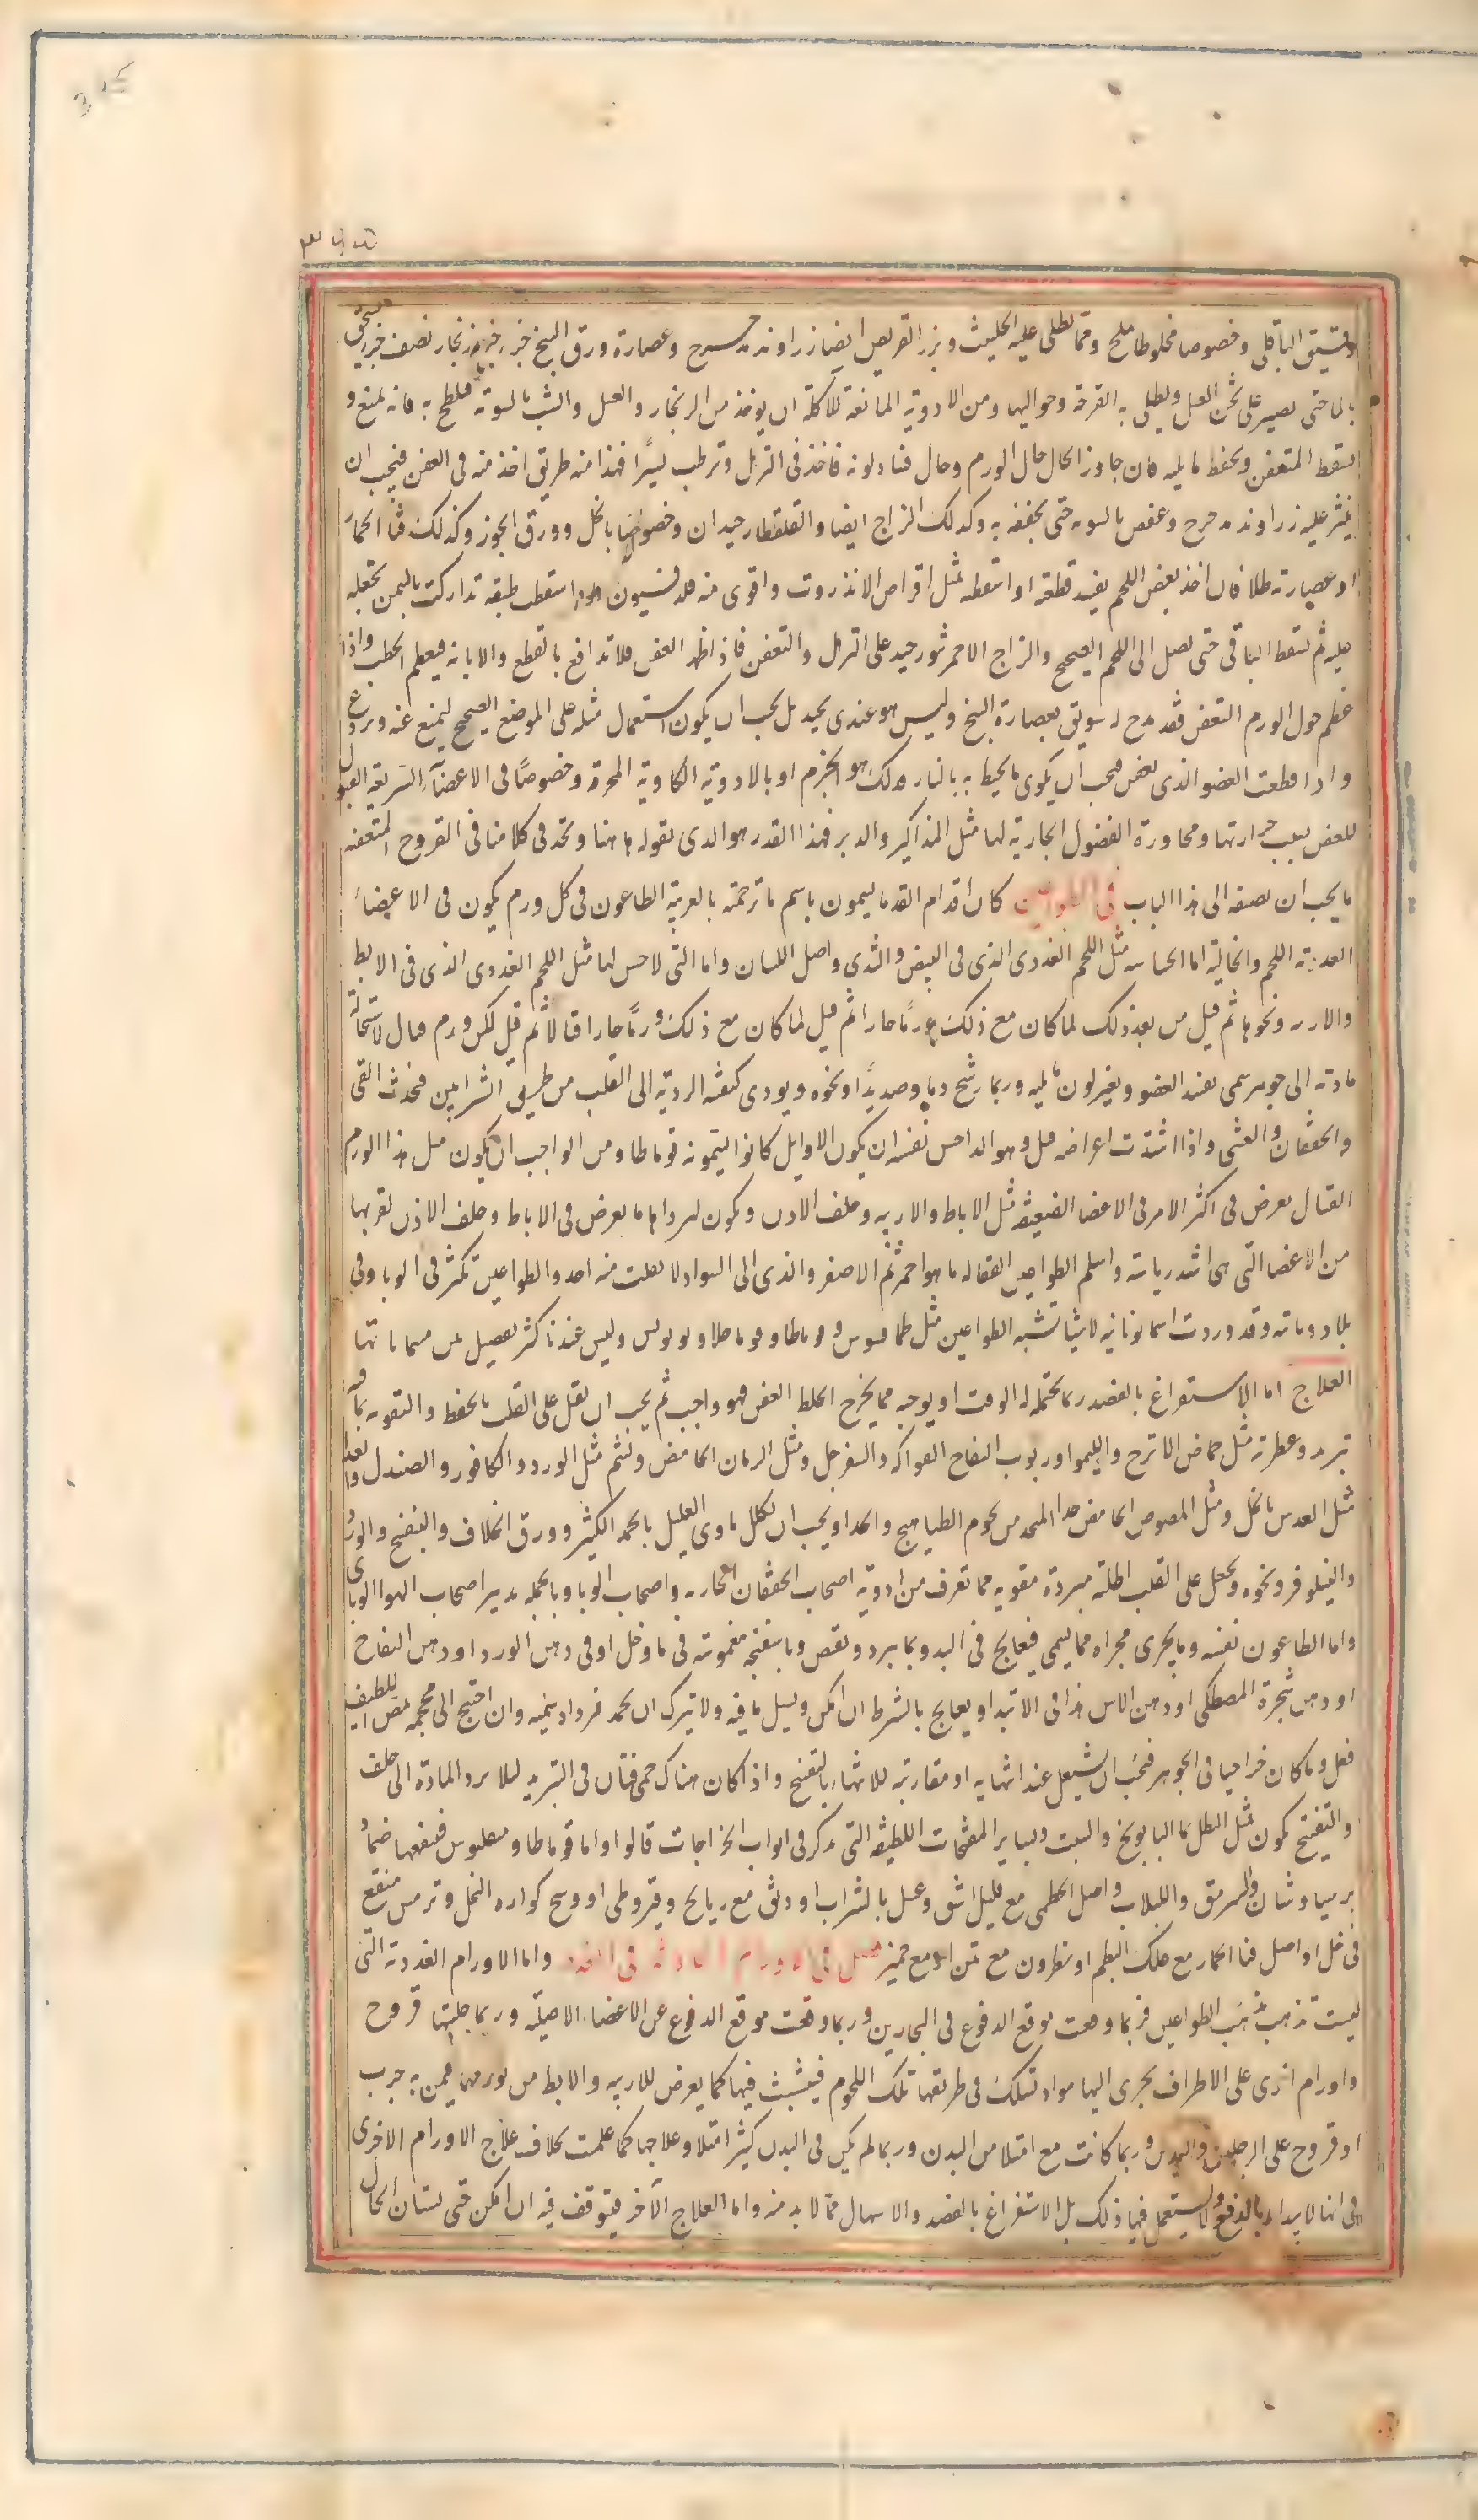 ودقيق الباقلى وخصوصا مخلوطا بملح ومما يطلى عليه الحلتيث وبزر القريص ايضا زراوند مدحرج وعصارة ورق البنج جزء جزء زنجار نصف جزء يسحق
بالماء حتى يصير على ثخن العسل ويطلى به القرحة وحواليها ومن الادوية المانعة للآكلة ان يوخذ من الزنجار والعسل والشب بالسوية فلطخ به فانه يمنع و
يسقط المتعفن ويحفظ ما يليه فان جاوز الحال حال الورم وحال فساد لونه فاخذ فى الترهل وترطب يسيرًا فهذا منه طريق اخذ منه فى العفن فيجب ان
ينثر عليه زراوند مدحرج وعفص بالسويه حتى يجففه به وكذلك الزاج ايضا والقلقطار جيدان وخصوصًا بالخل وورق الجوز وكذلك قثا الحمار
او عصارته طلا فان اخذ بعض اللحم يفسد قطعته او اسقطه بمثل اقراص الاندروت واقوى منه فلدفسيون فاذا سقطت طبقه تداركت بالسمن تجعله
عليه ثم تسقط الباقى حتى تصل الى اللحم الصحيح والزاج الاحمر نثور جيد على الترهل والتعفن فاذا ظهر العفن فلا تدافع بالقطع والابانه فيعظم الخطب واذا
عظم حول الورم التعفن فقد مدح له سويق بعصارة البنج وليس هو عندى بجيد بل يجب ان يكون استعمال مثله على الموضع الصحيح ليمنع عنه ويردع
واذا قطعت العضو الذى تعفن فيجب ان يكوى ما يحيط به بالنار فذلك هو الجزم او بالادوية الكاوية المحرقة وخصوصًا فى الاعضآء السريعة القبول
للعفن بسبب حرارتها ومجاورة الفضول الجارية لها مثل المذاكير والدبر فهذا القدر هو الذى نقوله ها هنا وتجد فى كلامنا فى القروح المتعفنه
ما يجب ان تضيفه الى هذا الباب فى الطواعين كان اقدام القدما يسمون باسم ما ترجمته بالعربية الطاعون فى كل ورم يكون فى الاعضاء
الغددية اللحم والخالية اما الحاسه مثل اللحم الغددى الذى فى البيض والثدى واصل اللسان واما التى لا حس لها مثل اللحم الغددى الذى فى الابط
والاربيه ونحوها ثم قيل من بعد ذلك لما كان مع ذلك ورمًا حارا ثم قيل لما كان مع ذلك ورمًا حارا قتالا ثم قيل لكل ورم قتال لاستحالة
مادته الى جوهر سمى يفسد العضو ويغير لون ما يليه وربما رشح دما وصديدًا ونحوه ويودى كيفيته الرديه الى القلب من طريق الشرايين فيحدث القى
والخفقان والغشى واذا اشتدت اعراضه قتل وهو الداحس نفسه ان يكون الاوايل كانوا يسمونه قوماطا ومن الواجب ان يكون مثل هذا الورم
القتال يعرض فى اكثر الامر فى الاعضا الضعيفه مثل الاباط والاربيه وخلف الاذن ويكون اردوها ما يعرض فى الاباط وخلف الاذن لقربها
من الاعضا التى هى اشد رياسه واسلم الطواعين القتاله ما هو احمر ثم الاصفر والذى الى السواد لا يفلت منه احد والطواعين تكثر فى الوبا وفى
بلاد وباية وقد وردت اسما يونانيه لاشيا تشبه الطواعين مثل طما فسوس و قوماطا وفوما حلا وبوبوس وليس عندنا كثر تفصيل من مسمياتها
العلاج اما الاستفراغ بالفصد وبما يحتمله الوقت او يوجبه مما يخرج الخلط العفن فهو واجب ثم يجب ان تقبل على القلب بالحفظ والتقويه بما فيه
تبريد وعطرية مثل حماض الاترج والليمو وربوب التفاح الفواكه والسفرجل ومثل الرمان الحامض ويشم مثل الورد والكافور والصندل والغذا
مثل العدس بالخل ومثل المصوص الحامض جدا المتخذ من لحوم الطياهيج والجدا ويجب ان يكلل ماوى العليل بالجمد الكثير وورق الخلاف والبنفسج والورد
والنيلوفر ونحوه ويجعل على القلب اطلية مبردة مقويه مما تعرف من ادوية اصحاب الخفقان الحار به واصحاب الوبا وبالجمله تدبير اصحاب الهوا الوباى
واما الطاعون نفسه وما يجرى مجراه مما يسمى فيعالج فى البدو بما يبرد ويقبض وباسفنجه مغموسة فى ما وخل او فى دهن الورد او دهن التفاح
او دهن شجرة المصطكى او دهن الاس هذا فى الابتدا ويعالج بالشرط ان امكن ويسيل ما فيه ولا يترك ان يجمد فيزداد سميه وان احتيج الى محجمه تمص باللطف
فعل وما كان خراجيا فى الجوهر فيجب ان يشتغل عند انتهايه او مقاربته للانتها بالتفتيح واذا كان هناك حمى فتأن فى التبريد ليلا يرد المادة الى خلف
والتفتيح يكون بمثل النطل بما البابونج والشبت وبساير المفتحات اللطيفه التى تذكر فى ابواب الخراجات قالوا واما قوماطا و بوبوس فينفعها ضماد
برسياوشان والسرمق واللبلاب واصل الخطمى مع قليل اشق وعسل بالشراب او دبق مع ريانج وقيروطى او وسخ كواره النحل وترمس منقع
فى خل او اصل قثا الحمار مع علك البطم او نطرون مع تين او مع خمير فصل فى الاورام الحادثه فى الغدد واما الاورام الغددية التى
ليست تذهب مذهب الطواعين فربما وقعت موقع الدفوع فى البحارين وربما وقعت موقع الدفوع عن الاعضاء الاصلية وربما جلبتها قروح
واورام اخرى على الاطراف يجرى اليها مواد تسلك فى طريقها تلك اللحوم فيتشبث فيها كما يعرض للاربيه والابط من تورمهما فيمن به جرب
او قروح على الرجلين واليدين وربما كانت مع امتلا من البدن وربما لم يكن فى البدن كثير امتلا وعلاجها كما علمت بخلاف علاج الاورام الاخرى
فى انها لا يبدا بالدفع ولا يستعمل فيها ذلك بل الاستفراغ بالفصد والاسهال مما لا بد منه واما العلاج الآخر فيتوقف فيه ان امكن حتى يستبان الحال